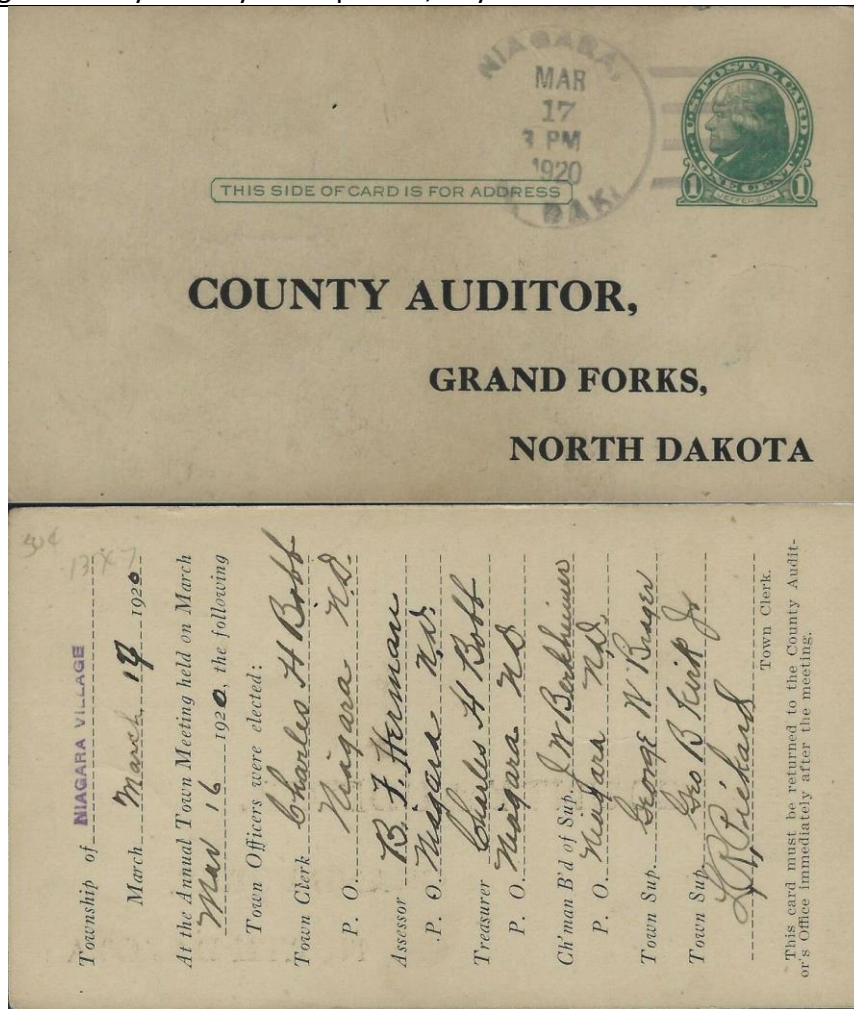 NIAGARA,
MAR
17
3 PM
1920
DAK.
U.S. POSTAL CARD
ONE CENT
1 1
JEFFERSON
THIS SIDE OF CARD IS FOR ADDRESS
COUNTY AUDITOR,
GRAND FORKS,
NORTH DAKOTA
50¢
13x7
Township of NIAGARA VILLAGE
March March 17 1920
At the Annual Town Meeting held on March
Mar 16 1920, the following
Town Officers were elected:
Town Clerk Charles H Bobb
P. O. Niagara N.D.
Assessor B. F. Herman
P. O. Niagara N.D.
Treasurer Charles H Bobb
P. O. Niagara ND
Ch'man B'd of Sup. J W Berkheimer
P. O. Niagara N.D.
Town Sup. George W Brager
Town Sup. Geo B Kirk Jr
L R Pickard
Town Clerk.
This card must be returned to the County Audit-
or's Office immediately after the meeting.